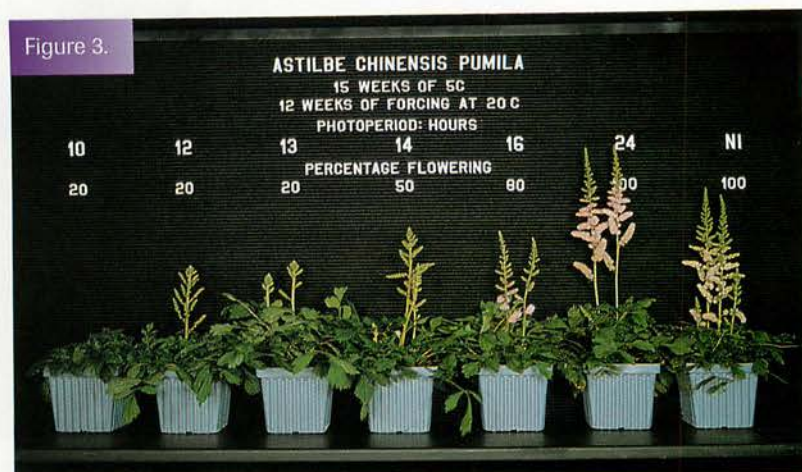 Figure 3.
ASTILBE CHINENSIS PUMILA
15 WEEKS OF 5C
12 WEEKS OF FORCING AT 20 C
PHOTOPERIOD: HOURS
10 12 13 14 16 24 NI
PERCENTAGE FLOWERING
20 20 20 50 80 00 100